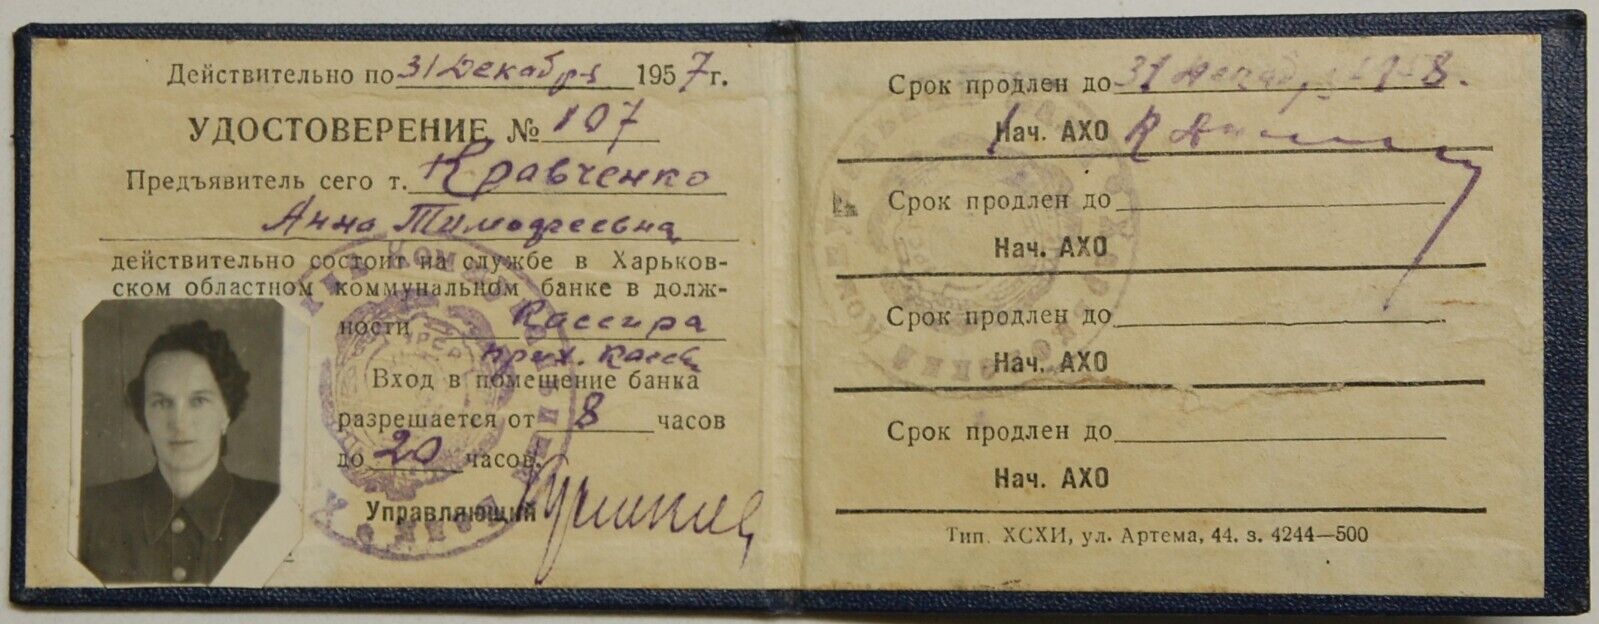 Действительно по 31 Декабря 1957 г.
УДОСТОВЕРЕНИЕ № 107
Предъявитель сего т. Кравченко
Анна Тимофеевна
действительно состоит на службе в Харьков-
ском областном коммунальном банке в долж-
ности Кассира
прих. кассы
Вход в помещение банка
разрешается от 8 часов
до 20 часов.
Управляющий
Срок продлен до 31 Декабря 1958.
Нач. АХО
Срок продлен до
Нач. АХО
Срок продлен до
Нач. АХО
Срок продлен до
Нач. АХО
Тип. ХСХИ, ул. Артема, 44. з. 4244—500